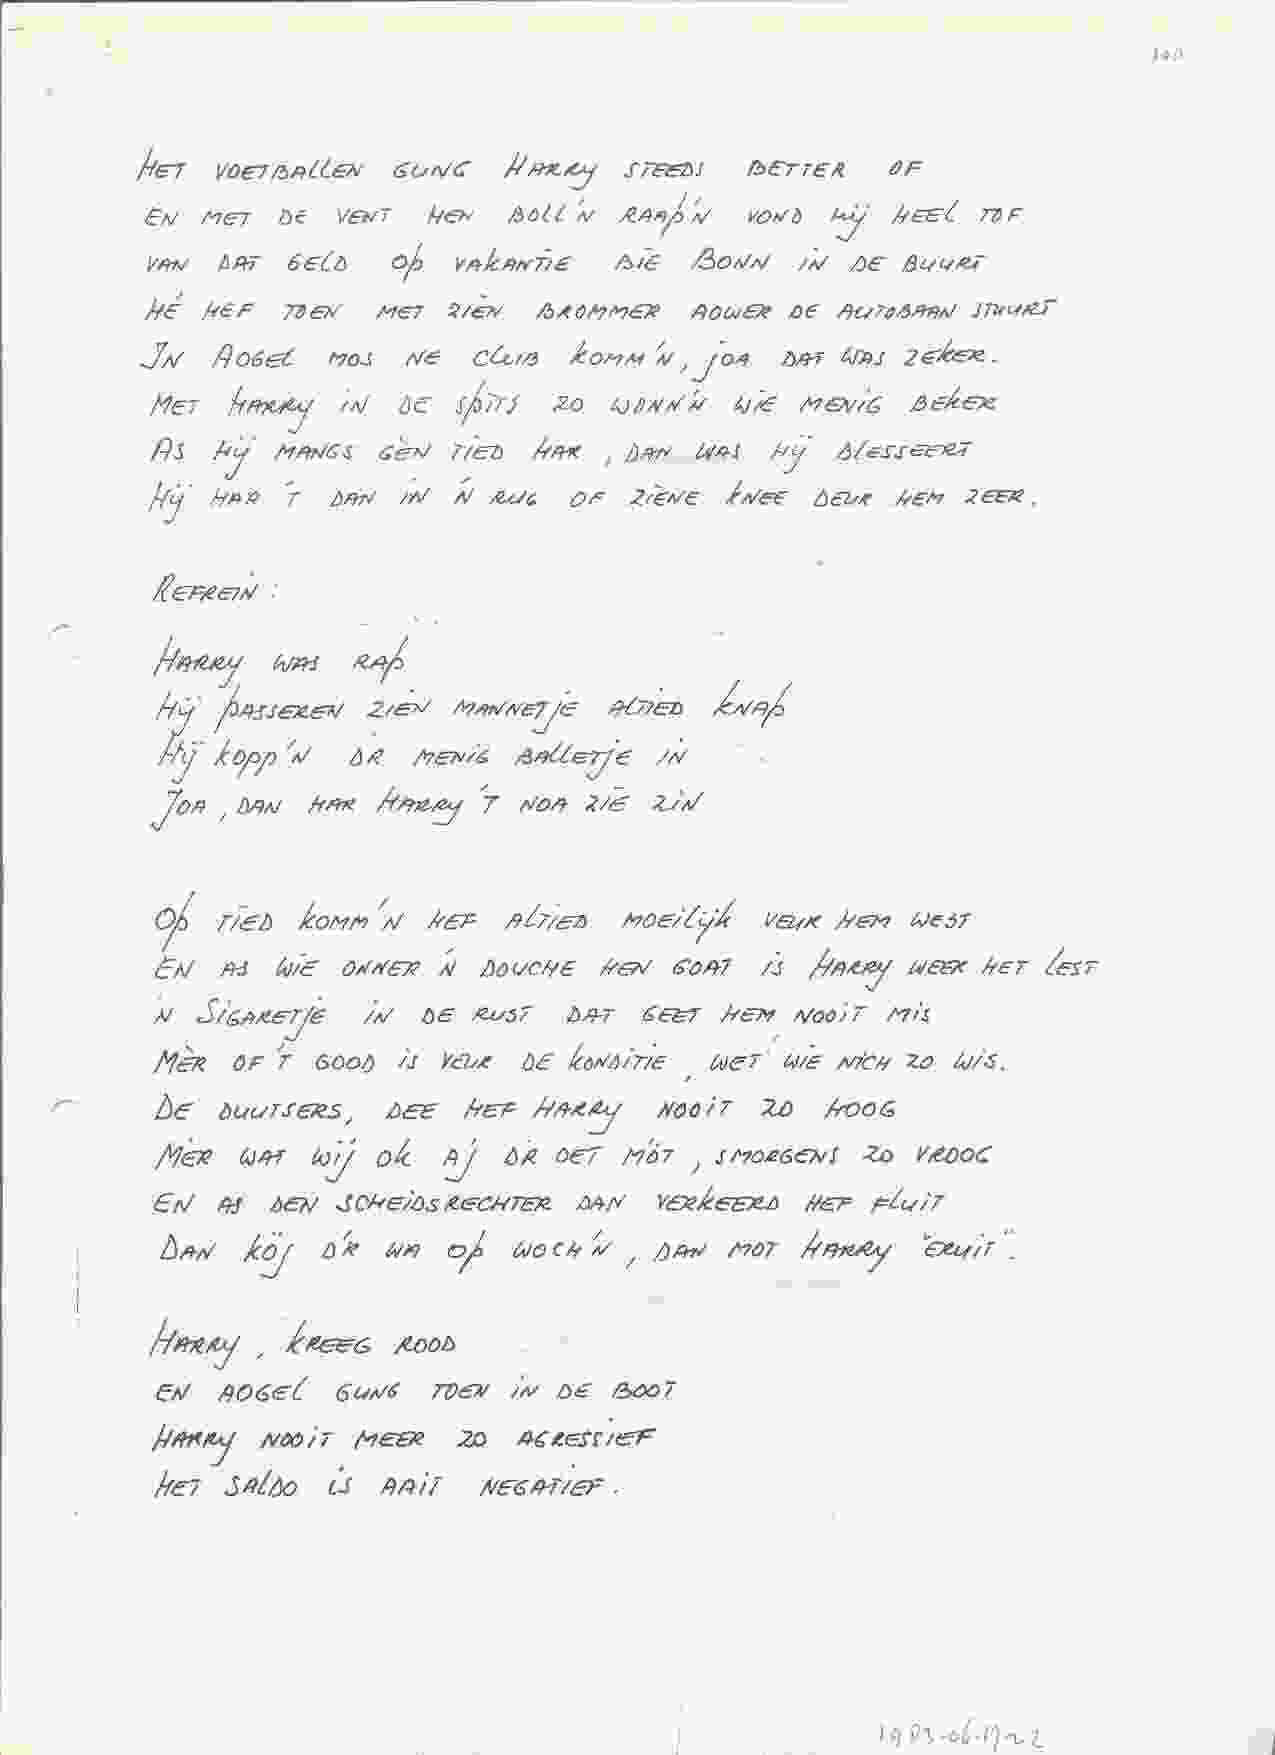 Het voetballen gung Harry steeds better of
en met de vent hen boll'n raap'n vond hij heel tof
van dat geld op vakantie bie Bonn in de buurt
hé hef toen met zien brommer aower de autobaan stuurt
In Aogel mos ne club komm'n, joa dat was zeker.
Met Harry in de spits zo wonn'n wie menig beker
As hij mangs gèn tied har, dan was hij blesseert
Hij har 't dan in 'n rug of ziene knee deur hem zeer.
Refrein:
Harry was rap
Hij passeren zien mannetje altied knap
Hij kopp'n dr menig balletje in
Joa, dan har Harry 't noa zie zin
Op tied komm'n hef altied moeilijk veur hem west
En as wie onner 'n douche hen goat is Harry weer het lest
'n Sigaretje in de rust dat geet hem nooit mis
Mèr of 't good is veur de konditie, wet wie nich zo wis.
De Duutsers, dee hef Harry nooit zo hoog
Mèr wat wij ok a'j dr oet mót, smorgens zo vroog
En as den scheidsrechter dan verkeerd hef fluit
Dan köj d'r wa op woch'n, dan mot Harry "eruit".
Harry, kreeg rood
en Aogel gung toen in de boot
Harry nooit meer zo agressief
Het saldo is aait negatief.